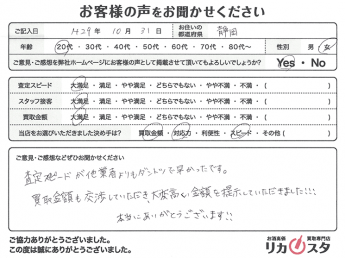 お客様の声をお聞かせください
ご記入日 H29年 10月 31日 お住いの都道府県 静岡
年齢 20代・30代・40代・50代・60代・70代・80代〜 性別 男・女
ご意見・ご感想を弊社ホームページにお客様の声として掲載させて頂いてもよろしいでしょうか? Yes・No
査定スピード 大満足・満足・やや満足・どちらでもない・やや不満・不満・( )
スタッフ接客 大満足・満足・やや満足・どちらでもない・やや不満・不満・( )
買取金額 大満足・満足・やや満足・どちらでもない・やや不満・不満・( )
当店をお選びいただきました決め手は? 買取金額・対応力・利便性・スピード・その他( )
ご意見・ご感想などぜひお聞かせください
査定スピードが他業者よりもダントツで早かったです。
買取金額も交渉していただき、大変高い金額を提示していただきました!!!
本当にありがとうございます!!
ご協力ありがとうございました。
この度は誠にありがとうございました。
お酒高価買取専門店
リカスタ